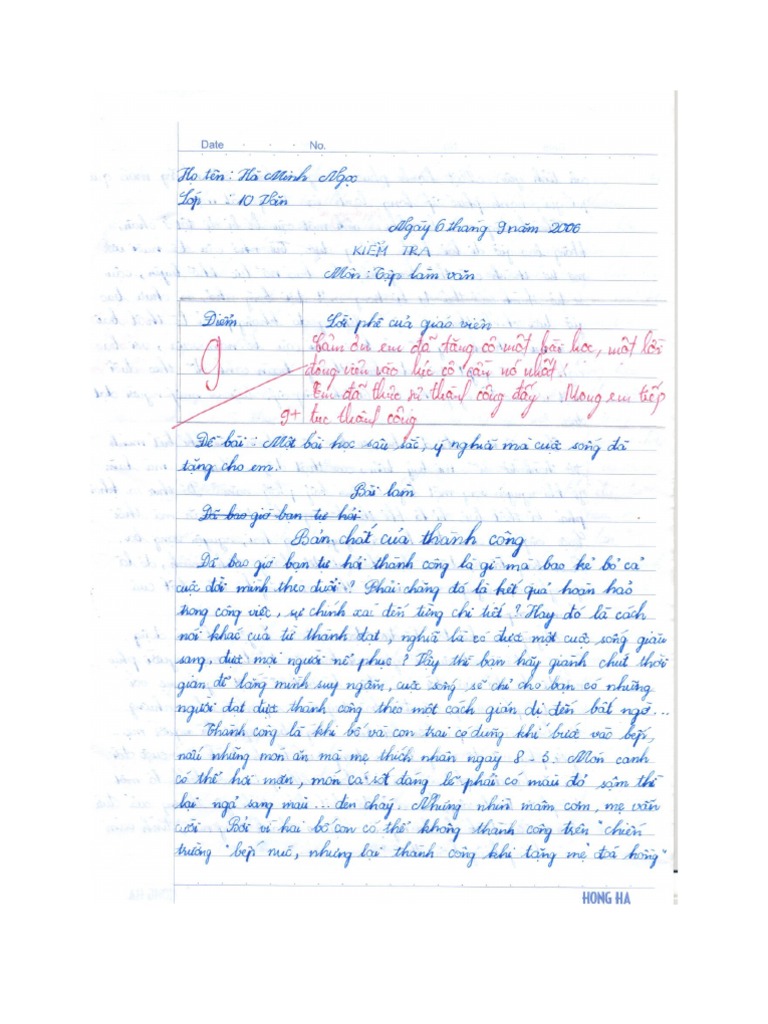 Date No.
Họ tên : Hà Minh Ngọc
Lớp .. : 10 Văn
Ngày 6 tháng 9 năm 2006
KIỂM TRA
Môn : Tập làm văn
Điểm Lời phê của giáo viên
9 Cảm ơn em đã tặng cô một bài học, một lời
động viên vào lúc cô cần nó nhất!
Em đã thực sự thành công đấy. Mong em tiếp
9+ tục thành công
Đề bài : Một bài học sâu sắc, ý nghĩa mà cuộc sống đã
tặng cho em.
Bài làm
Đã bao giờ bạn tự hỏi
Bản chất của thành công
Đã bao giờ bạn tự hỏi thành công là gì mà bao kẻ bỏ cả
cuộc đời mình theo đuổi ? Phải chăng đó là kết quả hoàn hảo
trong công việc, sự chính xác đến từng chi tiết ? Hay đó là cách
nói khác của từ thành đạt, nghĩa là có được một cuộc sống giàu
sang, được mọi người nể phục ? Vậy thì bạn hãy giành chút thời
gian để lặng mình suy ngẫm, cuộc sống sẽ chỉ cho bạn có những
người đạt được thành công theo một cách giản dị đến bất ngờ...
Thành công là khi bố và con trai có dũng khí bước vào bếp,
nấu những món ăn mà mẹ thích nhân ngày 8 - 3. Món canh
có thể hơi mặn, món cá sốt đáng lẽ phải có màu đỏ sậm thì
lại ngả sang màu... đen cháy. Nhưng nhìn mâm cơm, mẹ vẫn
cười. Bởi vì hai bố con có thể không thành công trên "chiến
trường" bếp núc, nhưng lại thành công khi tặng mẹ "đoá hồng"
HONG HA